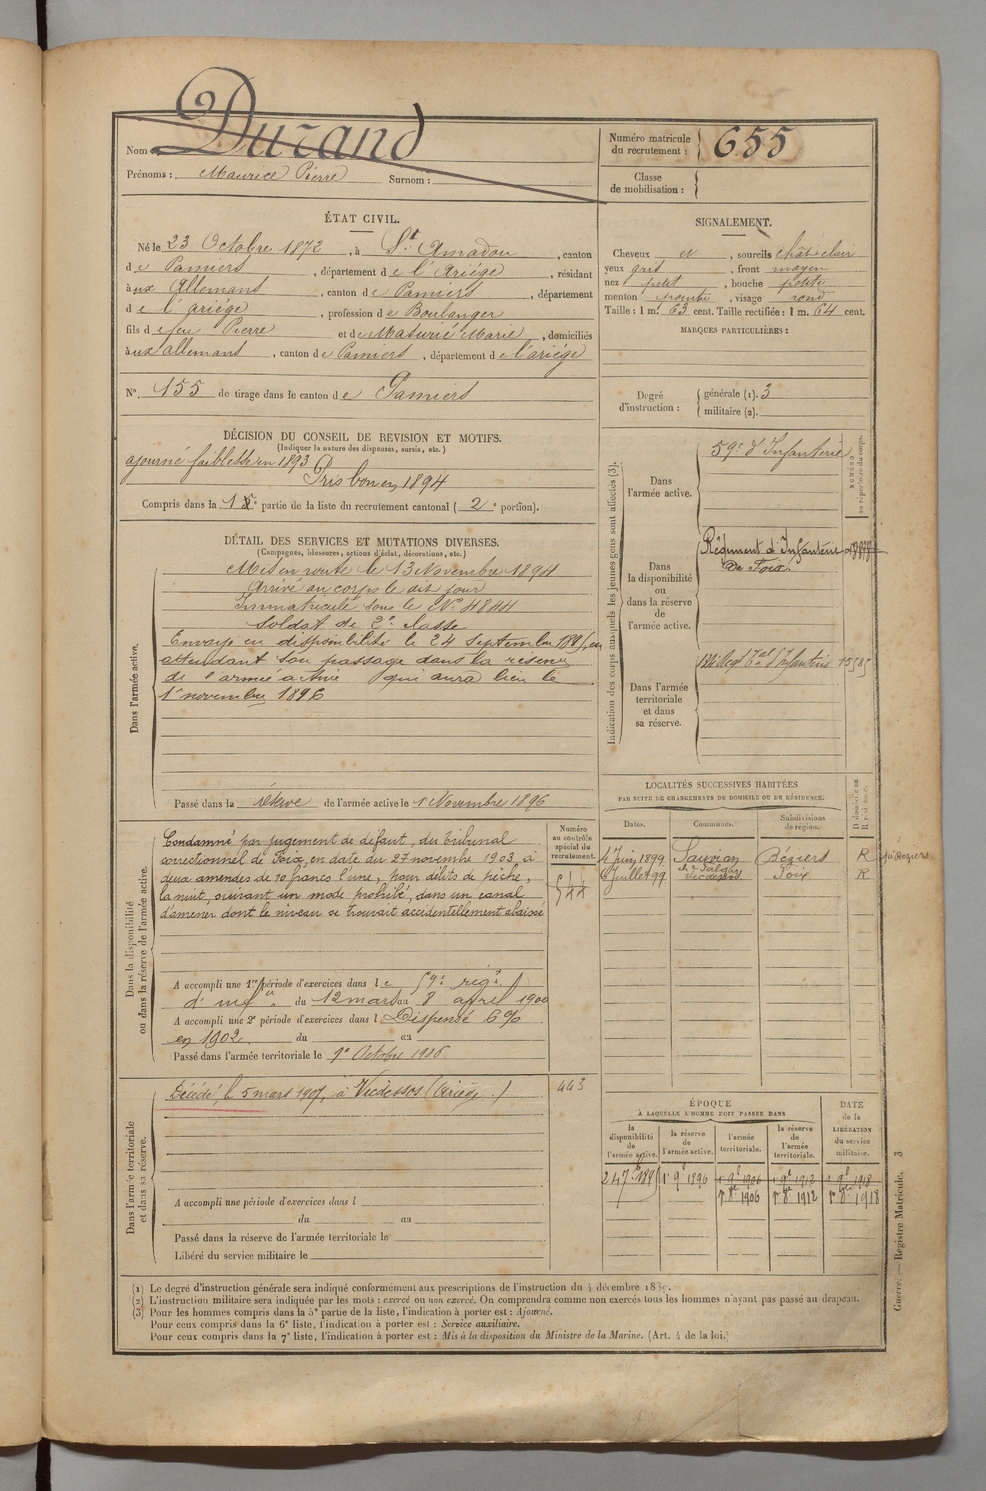 Nom Durand
Prénoms : Maurice Pierre Surnom :
Numéro matricule du recrutement : 655
Classe de mobilisation :
ÉTAT CIVIL.
Né le 23 Octobre 1872, à St Amadou, canton
de Pamiers, département de l'Ariége, résidant
à aux Allemans, canton de Pamiers, département
de l'ariége, profession de Boulanger
fils de feu Pierre et de Marie, domiciliés
à aux allemans, canton de Pamiers, département de l'ariége
N° 155 de tirage dans le canton de Pamiers
SIGNALEMENT.
Cheveux et, sourcils chât clair
yeux gris, front moyen
nez petit, bouche petite
menton pointu, visage rond
Taille : 1 m. 63 cent. Taille rectifiée : 1 m. 64 cent.
MARQUES PARTICULIÈRES :
DÉCISION DU CONSEIL DE REVISION ET MOTIFS.
(Indiquer la nature des dispenses, sursis, etc.)
ajourné faiblesse en 1893
Pris bon en 1894
Compris dans la 1e partie de la liste du recrutement cantonal ( 2e portion).
Degré d'instruction : générale (1). 3
militaire (2).
DÉTAIL DES SERVICES ET MUTATIONS DIVERSES.
(Campagnes, blessures, actions d'éclat, décorations, etc.)
Dans l'armée active.
Mis en route le 13 Novembre 1894
Arrivé au corps le dit jour
Immatriculé sous le N° 4844
Soldat de 2e classe
Envoyé en disponibilité le 24 septembre 1895, en
attendant son passage dans la réserve
de l'armée active qui aura lieu le
1er novembre 1896
Passé dans la réserve de l'armée active le 1er Novembre 1896
Indication des corps auxquels les jeunes gens sont affectés (3).
NUMÉRO au répertoire du corps.
Dans l'armée active.
59e d'Infanterie
Dans la disponibilité ou dans la réserve de l'armée active.
Régiment d'Infanterie
de Foix.
Dans l'armée territoriale et dans sa réserve.
Regt Tal d'Infanterie
LOCALITÉS SUCCESSIVES HABITÉES
PAR SUITE DE CHANGEMENTS DE DOMICILE OU DE RÉSIDENCE.
Dates. Communes. Subdivisions de région. D domicile ou R résidence.
4 Juin 1899 Sauvian Béziers R
Juillet 99 Vicdessos Foix R
Dans la disponibilité ou dans la réserve de l'armée active.
Numéro au contrôle spécial du recrutement.
Condamné par jugement de défaut, du tribunal
correctionnel de Foix, en date du 27 novembre 1903, à
deux amendes de 10 francs l'une, pour délits de pêche,
la nuit, suivant un mode prohibé, dans un canal
d'amener dont le niveau se trouvait accidentellement abaissé
544
A accompli une 1re période d'exercices dans le 59e régt
d'infie du 12 mars au 8 avril 1900
A accompli une 2e période d'exercices dans l Dispensé 6%
en 1902 du au
Passé dans l'armée territoriale le 1er Octobre 1906
Dans l'armée territoriale et dans sa réserve.
Décédé, le 5 mars 1907, à Vicdessos (Ariège.)
443
A accompli une période d'exercices dans l
du au
Passé dans la réserve de l'armée territoriale le
Libéré du service militaire le
ÉPOQUE
À LAQUELLE L'HOMME DOIT PASSER DANS
DATE de la LIBÉRATION du service militaire.
la disponibilité de l'armée active. la réserve de l'armée active. l'armée territoriale. la réserve de l'armée territoriale.
24 7bre 1895 1er 9bre 1896 1er 9bre 1906 1er 9bre 1918
1er 8bre 1906 1er 8bre 1912 1er 8bre 1918
(1) Le degré d'instruction générale sera indiqué conformément aux prescriptions de l'instruction du 4 décembre 1889.
(2) L'instruction militaire sera indiquée par les mots : exercé ou non exercé. On comprendra comme non exercés tous les hommes n'ayant pas passé au drapeau.
(3) Pour les hommes compris dans la 5e partie de la liste, l'indication à porter est : Ajourné.
Pour ceux compris dans la 6e liste, l'indication à porter est : Service auxiliaire.
Pour ceux compris dans la 7e liste, l'indication à porter est : Mis à la disposition du Ministre de la Marine. (Art. 4 de la loi.)
Guerre. — Registre Matricule. 3